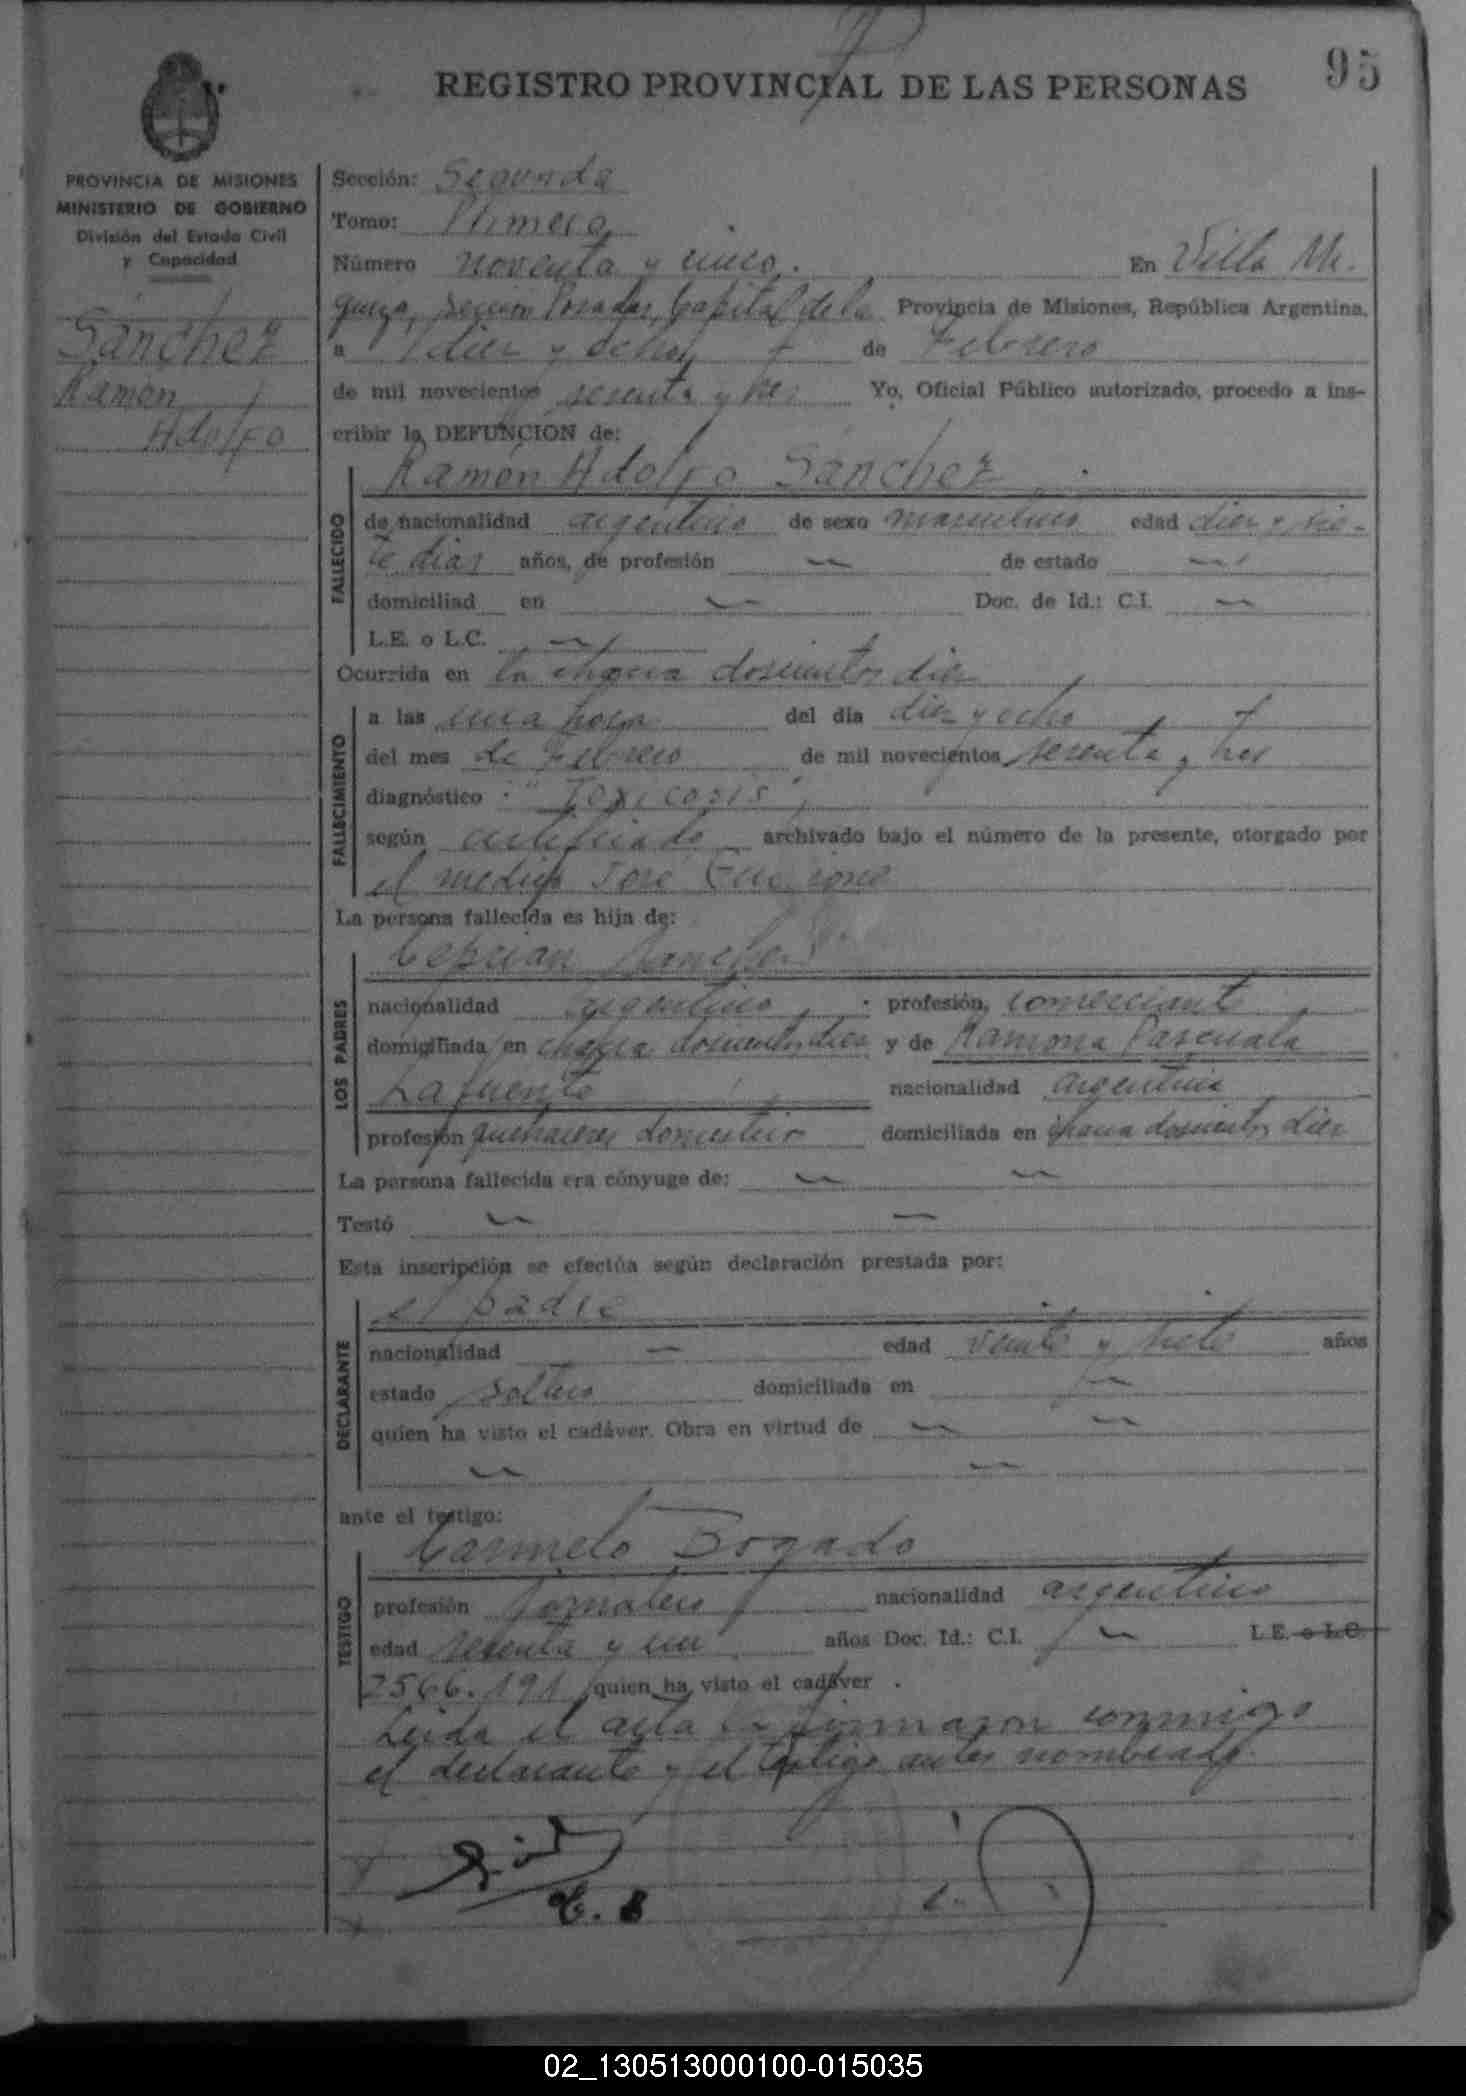 95
REGISTRO PROVINCIAL DE LAS PERSONAS
PROVINCIA DE MISIONES
MINISTERIO DE GOBIERNO
División del Estado Civil
y Capacidad
Sánchez
Ramón
Adolfo
Sección: Segunda
Tomo: Primero
Número noventa y cinco. En Villa
sección Posadas, Capital de la Provincia de Misiones, República Argentina,
a diez y ocho de Febrero
de mil novecientos sesenta y tres Yo, Oficial Público autorizado, procedo a ins-
cribir la DEFUNCION de:
Ramón Adolfo Sánchez
FALLECIDO
de nacionalidad argentino de sexo masculino edad diez y sie-
te dias años, de profesión — de estado —
domiciliad en — Doc. de Id.: C.I. —
L.E. o L.C. —
Ocurrida en la chacra doscientos diez
FALLECIMIENTO
a las una hora del dia diez y ocho
del mes de Febrero de mil novecientos sesenta y tres
diagnóstico "Toxicosis",
según certificado archivado bajo el número de la presente, otorgado por
el medico José
La persona fallecida es hija de:
Sanchez
LOS PADRES
nacionalidad argentino profesión, comerciante
domiciliada en chacra doscientos diez y de Ramona Pascuala
Lafuente nacionalidad argentina
profesión quehaceres domestico domiciliada en chacra doscientos diez
La persona fallecida era cónyuge de: — —
Testó — —
Esta inscripción se efectúa según declaración prestada por:
el padre
DECLARANTE
nacionalidad — edad veinte y siete años
estado soltero domiciliada en —
quien ha visto el cadáver. Obra en virtud de — —
— —
ante el testigo:
Carmelo Bogado
TESTIGO
profesión Jornalero nacionalidad argentino
edad sesenta y un años Doc. Id.: C.I. — L.E. o L.C.
2566.191 quien ha visto el cadáver .
Leida el acta la firmaron conmigo
el declarante y el testigo antes nombrado.
02_130513000100-015035